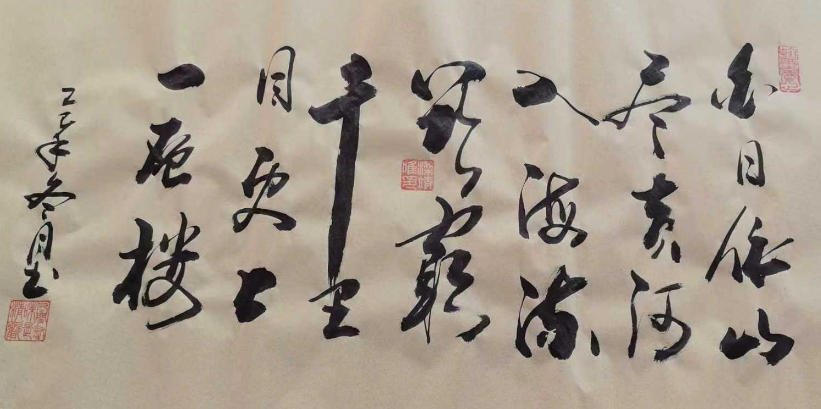 白日依山
尽黄河
入海流
欲穷
千里
目更上
一层楼
乙巳年冬月